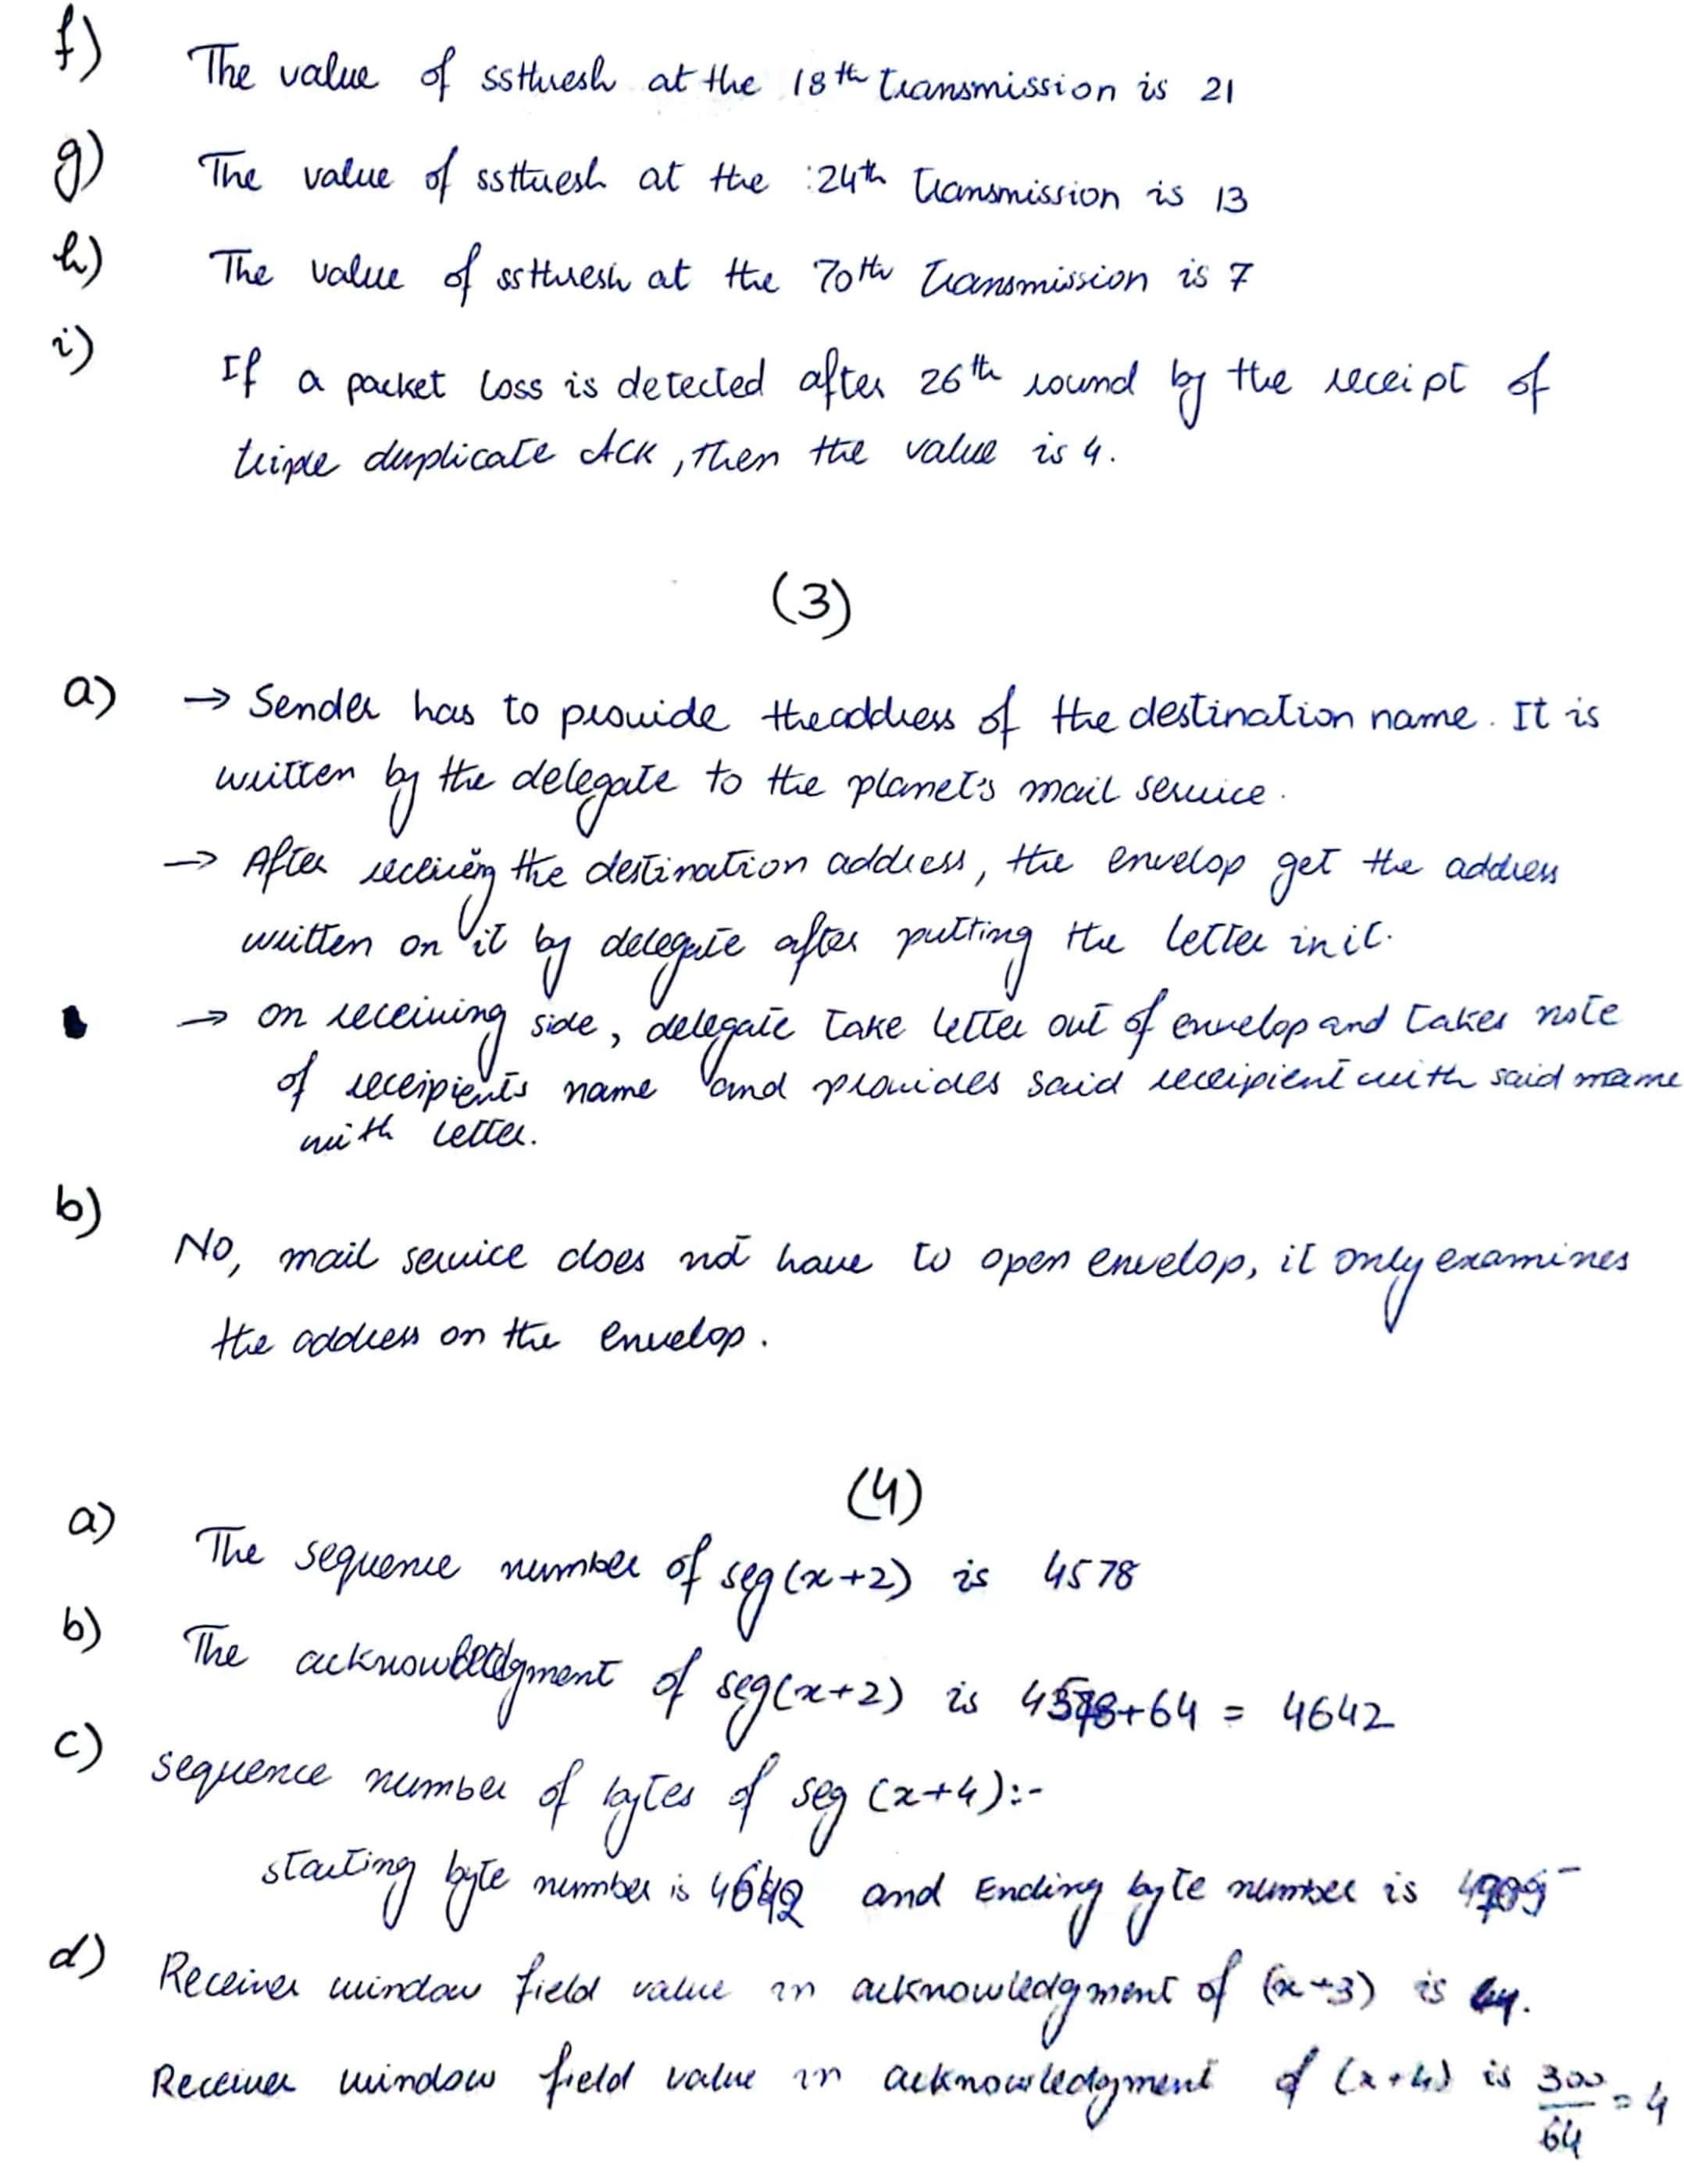 f) The value of ssthresh at the 18th transmission is 21
g) The value of ssthresh at the :24th transmission is 13
h) The value of ssthresh at the 70th transmission is 7
i) If a packet loss is detected after 26th round by the receipt of
triple duplicate ACK, then the value is 4.
(3)
a) → Sender has to provide the address of the destination name. It is
written by the delegate to the planet's mail service.
→ After receiving the destination address, the envelop get the address
written on it by delegate after putting the letter in it.
→ on receiving side, delegate take letter out of envelop and takes note
of receipients name and provides said receipient with said name
with letter.
b) No, mail service does not have to open envelop, it only examines
the address on the envelop.
(4)
a) The sequence number of seg(x+2) is 4578
b) The acknowledgment of seg(x+2) is 4578+64 = 4642
c) sequence number of bytes of seg (x+4):-
starting byte number is 4642 and Ending byte number is
d) Receiver window field value in acknowledgment of (x+3) is
Receiver window field value in acknowledgment of (x+4) is 300/64 = 4